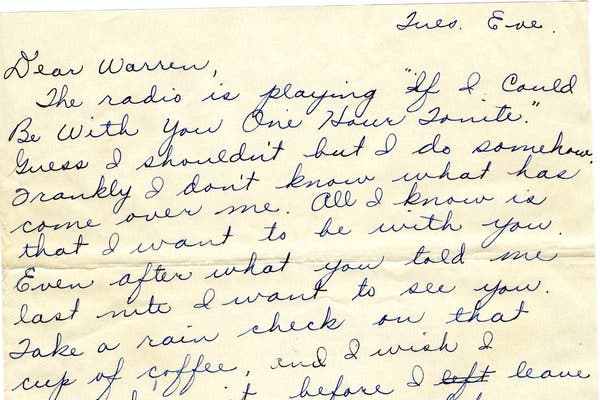 Tues. Eve.
Dear Warren,
The radio is playing "If I Could
Be With You One Hour Tonite."
Guess I shouldn't but I do somehow.
Frankly I don't know what has
come over me. All I know is
that I want to be with you.
Even after what you told me
last nite I want to see you.
Take a rain check on that
cup of coffee, and I wish I
before I left leave